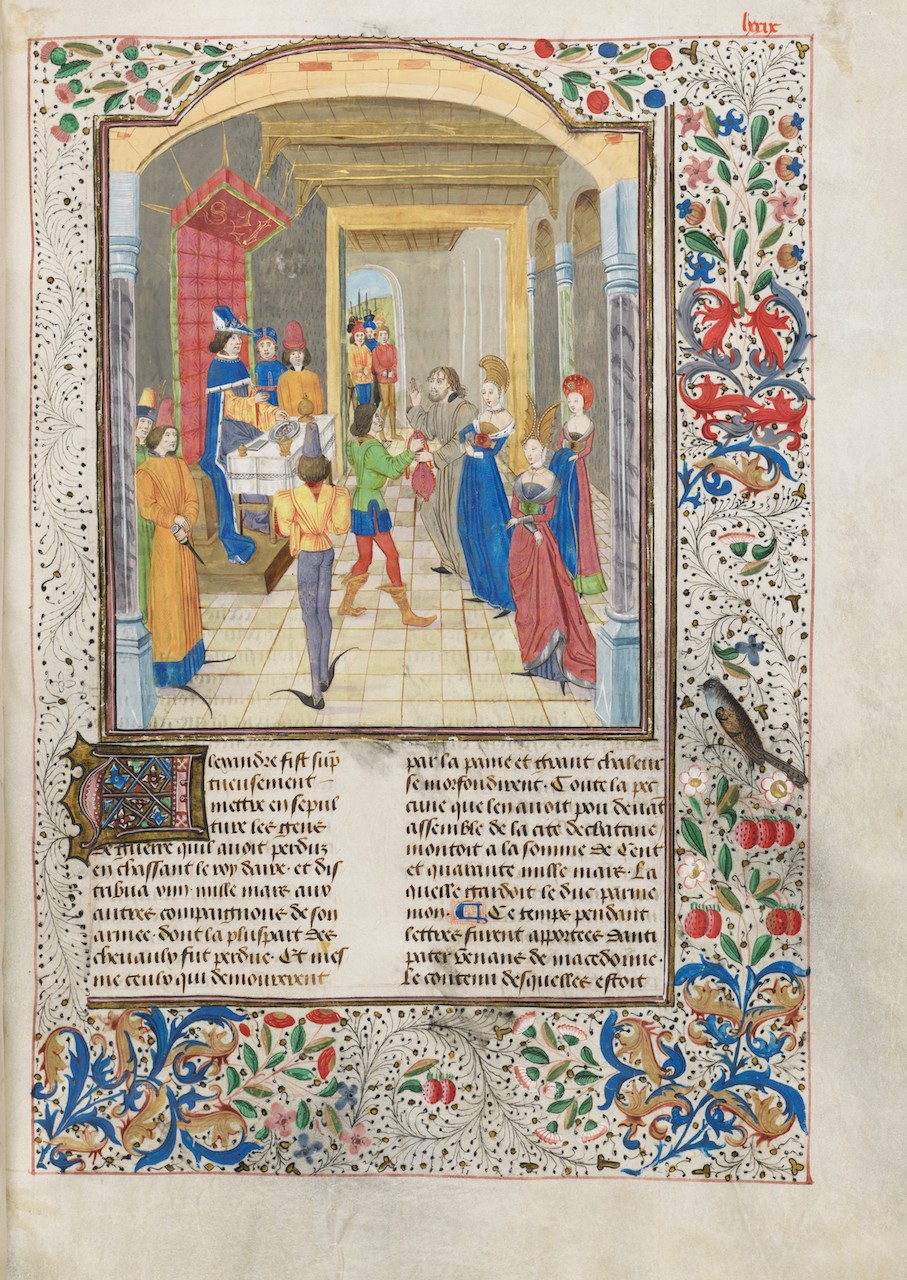 lxxix
Alexandre fist sūp
tueusement
mettre en sepul
ture les gens
de guerre quil auoit perduz
en chassant le roy daire · et dis
tribua xiii mille mars aux
autres compaignons de son
armee · dont la pluspart des
cheuaulx fut perdue · Et mes
me ceulx qui demourerent
par la paine et grant chaleur
se morfondirent · Toute la pec
cune que len auoit peu deuāt
assemble de la cite dechatane
montoit a la somme de Cent
et quarante mille mars · La
quelle gardoit le duc parme
mon · Ce temps pendant
lettres furent apportees danti
pater venans de macedonne ·
Le contenu desquelles estoit